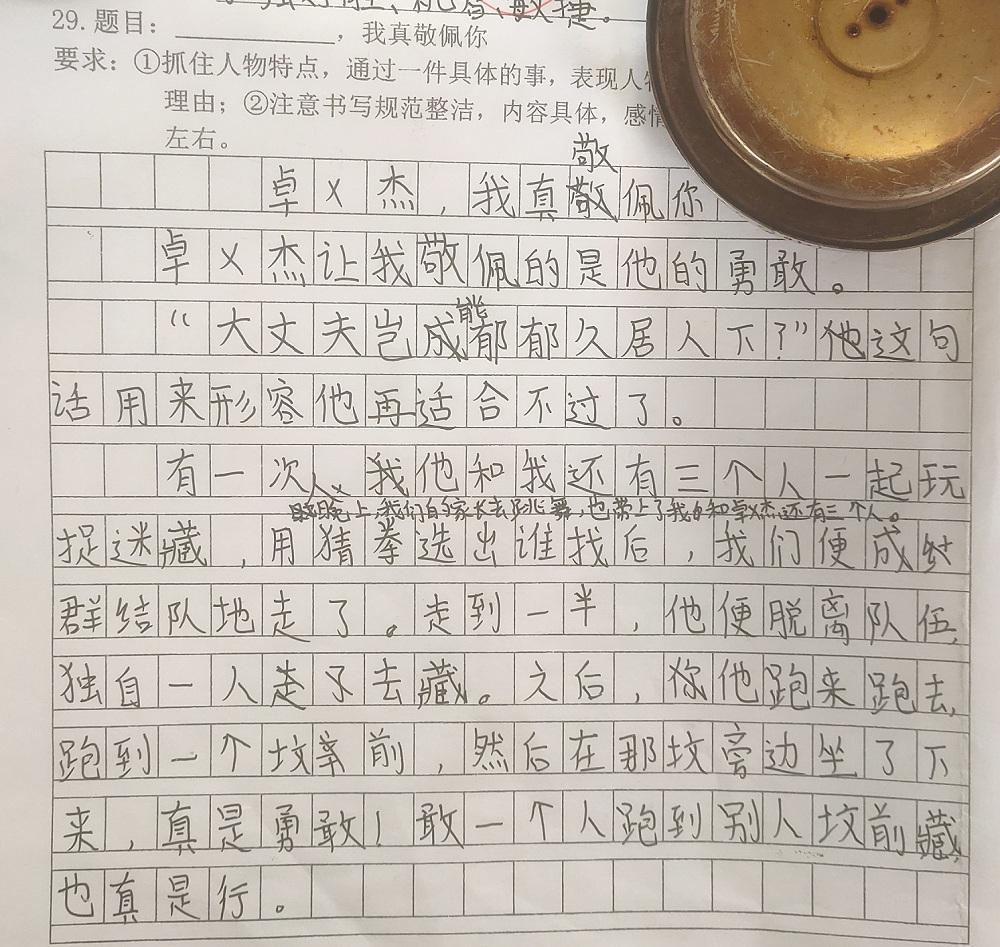 29.题目：____________，我真敬佩你
要求：①抓住人物特点，通过一件具体的事，表现人
理由；②注意书写规范整洁，内容具体，感情
左右。
敬
卓X杰，我真敬佩你
卓X杰让我敬佩的是他的勇敢。
能
“大丈夫岂成郁郁久居人下？”他这句
话用来形容他再适合不过了。
有一次，我他和我还有三个人一起玩
晚上，我们的家长去跳舞，也带上了我和卓X杰还有三个人。
捉迷藏，用猜拳选出谁找后，我们便成
群结队地走了。走到一半，他便脱离队伍，
独自一人走了去藏。之后，你他跑来跑去，
跑到一个坟前，然后在那坟旁边坐了下
来，真是勇敢！敢一个人跑到别人坟前藏，
也真是行。